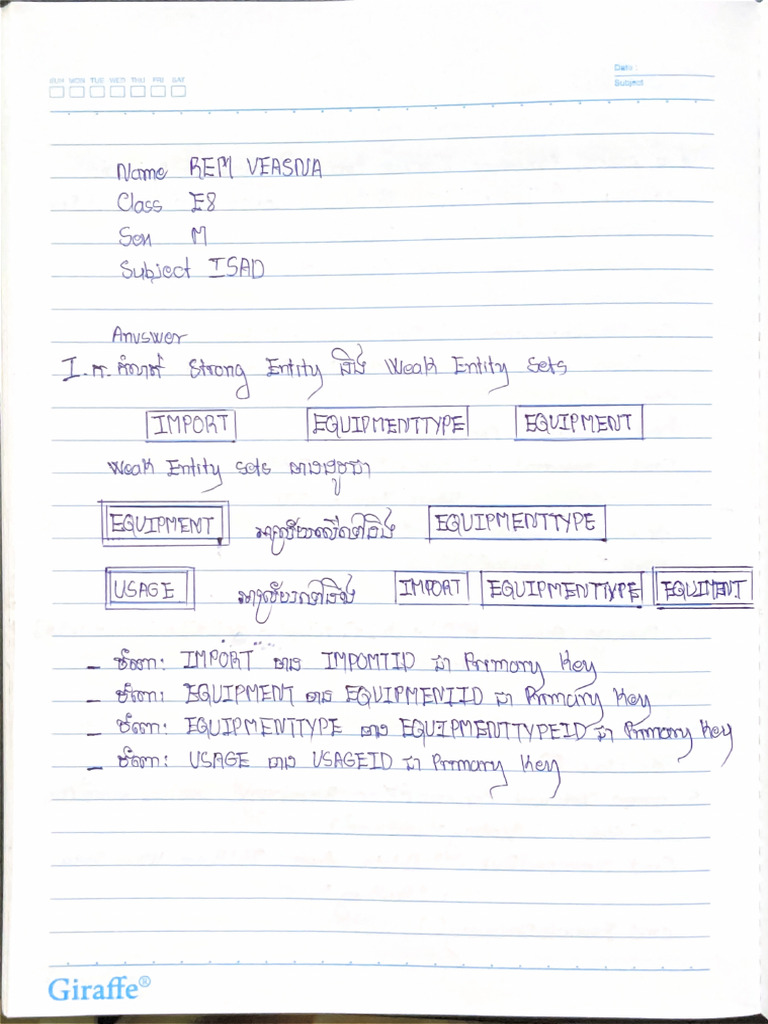 SUN MON TUE WED THU FRI SAT
Date :
Subject
Name REM VEASNA
Class E8
Sex M
Subject ISAD
Anuswer
I. ក. កំណត់ Strong Entity និង Weak Entity Sets
IMPORT EQUIPMENTTYPE EQUIPMENT
Weak Entity Sets មានដូចជា
EQUIPMENT អាស្រ័យលើទៅនឹង EQUIPMENTTYPE
USAGE អាស្រ័យទៅនឹង IMPORT EQUIPMENTTYPE EQUIMENT
- ចំពោះ IMPORT មាន IMPOMTID ជា Primary Key
- ចំពោះ EQUIPMENT មាន EQUIPMENTID ជា Primary Key
- ចំពោះ EQUIPMENTTYPE មាន EQUIPMENTTYPEID ជា Primary Key
- ចំពោះ USAGE មាន USAGEID ជា Primary Key
Giraffe®